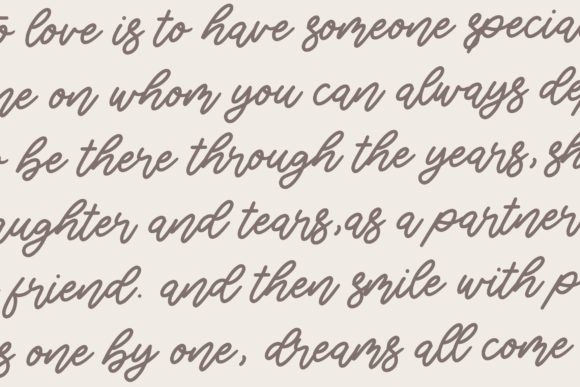 o love is to have someone specia
ne on whom you can always dep
o be there through the years, sh
aughter and tears, as a partner
friend. and then smile with p
s one by one, dreams all come